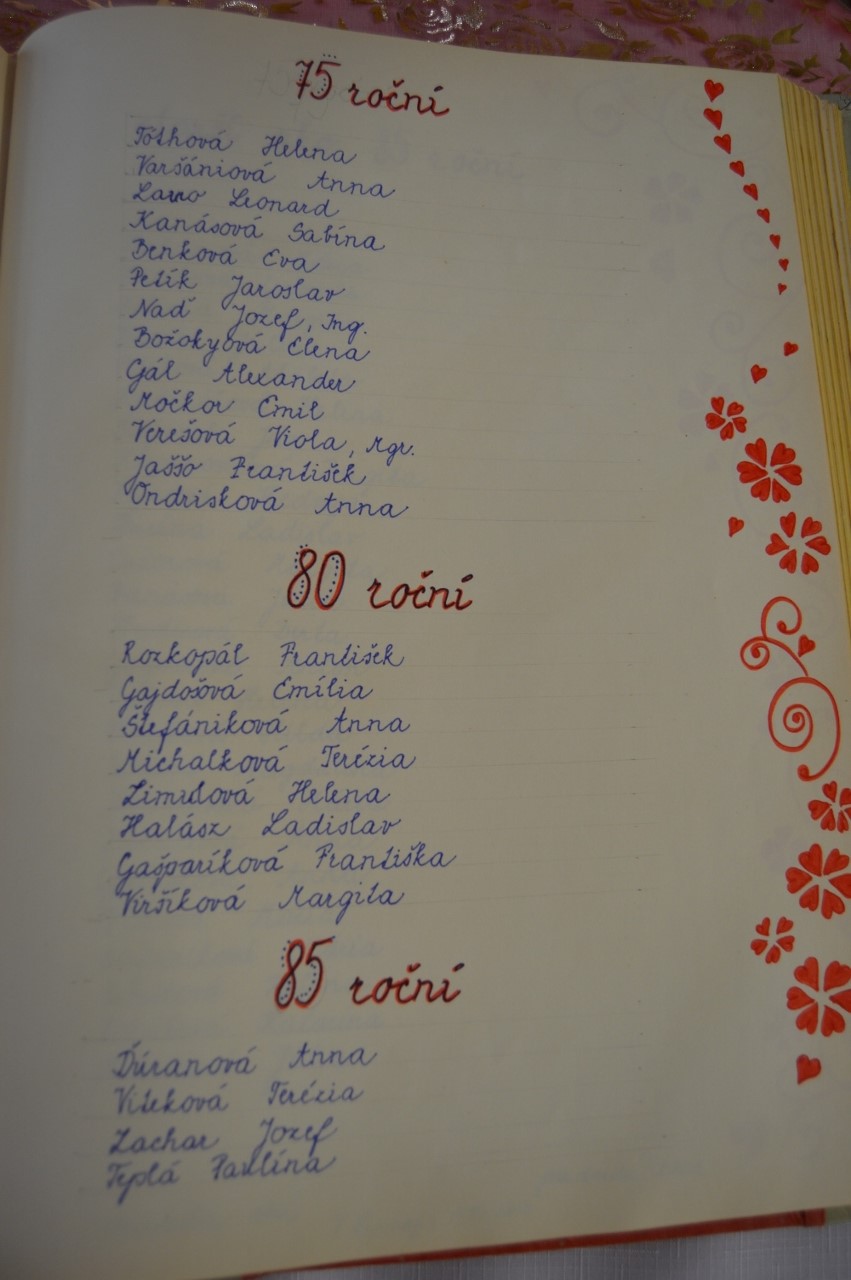 75 roční
Tóthová Helena
Varšániová Anna
Lavo Leonard
Kanásová Sabína
Benková Eva
Petík Jaroslav
Naď Jozef, Ing.
Božokyová Elena
Gál Alexander
Močkor Emil
Verešová Viola, Mgr.
Jaššo František
Ondrisková Anna
80 roční
Rozkopál František
Gajdošová Emília
Štefániková Anna
Michalková Terézia
Zimulová Helena
Halász Ladislav
Gašparíková Františka
Viršíková Margita
85 roční
Ďúranová Anna
Viteková Terézia
Zachar Jozef
Teplá Paulína